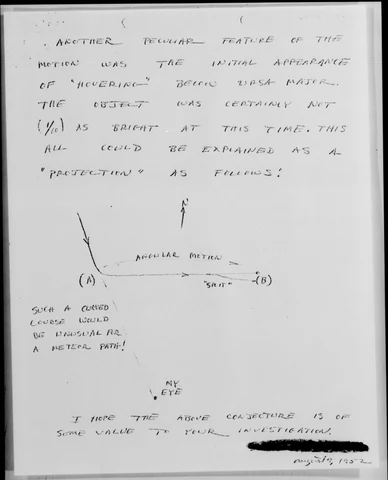 ANOTHER PECULIAR FEATURE OF THE
MOTION WAS THE INITIAL APPEARANCE
OF "HOVERING" BELOW URSA MAJOR.
THE OBJECT WAS CERTAINLY NOT
(1/10) AS BRIGHT AT THIS TIME. THIS
ALL COULD BE EXPLAINED AS A
"PROJECTION" AS FOLLOWS:
N
ANGULAR MOTION
(A)
"SPLIT" (B)
SUCH A CURVED
COURSE WOULD
BE UNUSUAL FOR
A METEOR PATH!
MY
EYE
I HOPE THE ABOVE CONJECTURE IS OF
SOME VALUE TO YOUR INVESTIGATION.
1952